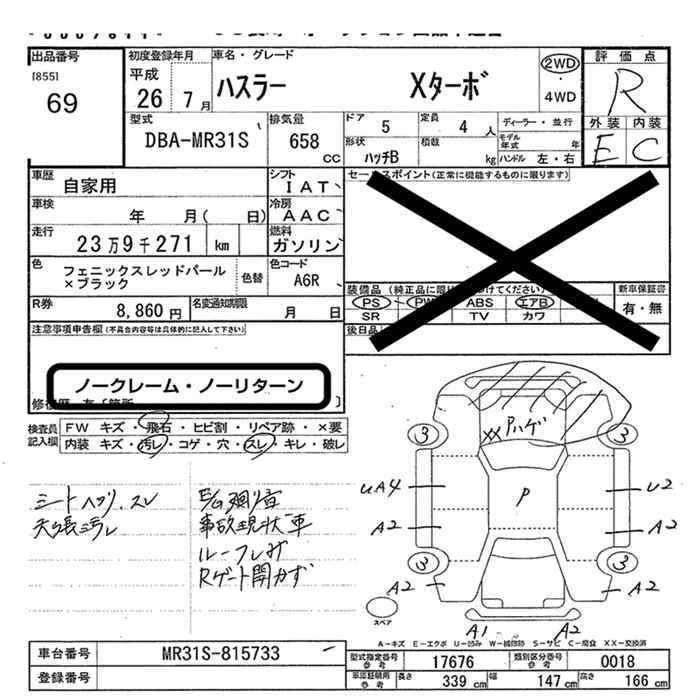 出品番号
[855]
69
初度登録年月
平成
26 7月
車名・グレード
ハスラー Xターボ
2WD
・
4WD
評価点
R
外装 内装
E C
型式
DBA-MR31S
排気量
658
CC
ドア 5
定員 4 人
形状
ハッチB
積載
kg
ディーラー・並行
モデル
年式 年
ハンドル 左・右
車歴
自家用
シフト
IAT
車検
年 月( 日)
冷房
AAC
走行
23万9千271 km
燃料
ガソリン
色
フェニックスレッドパール
×ブラック
色替
色コード
A6R
R券
8,860円
名変通知期限
月 日
セールスポイント(正常に機能するものに限ります)
装備品
PS PW ABS エアB
SR TV カワ
新車保証書
有・無
後日品
注意事項申告欄(不具合内容等は具体的に記入して下さい)
ノークレーム・ノーリターン
検査員
記入欄
FW キズ・飛石・ヒビ割・リペア跡・×要
内装 キズ・汚レ・コゲ・穴・スレ・キレ・破レ
シートヘタリ、スレ
天張汚レ
E/G廻り音
事故現状車
ルーフ凹み
Rゲート開かず
XX Pハゲ
3 3
UA4 P U2
A2 A2
3 3
A2 A2
A1 A2
スペア
A-キズ E-エクボ U-凹み W-補修跡 S-サビ C-腐食 XX-交換済
車台番号
MR31S-815733
登録番号
型式指定番号
参考
17676
類別区分番号
参考
0018
車検証明用
参考
長さ 339 cm
幅 147 cm
高さ 166 cm